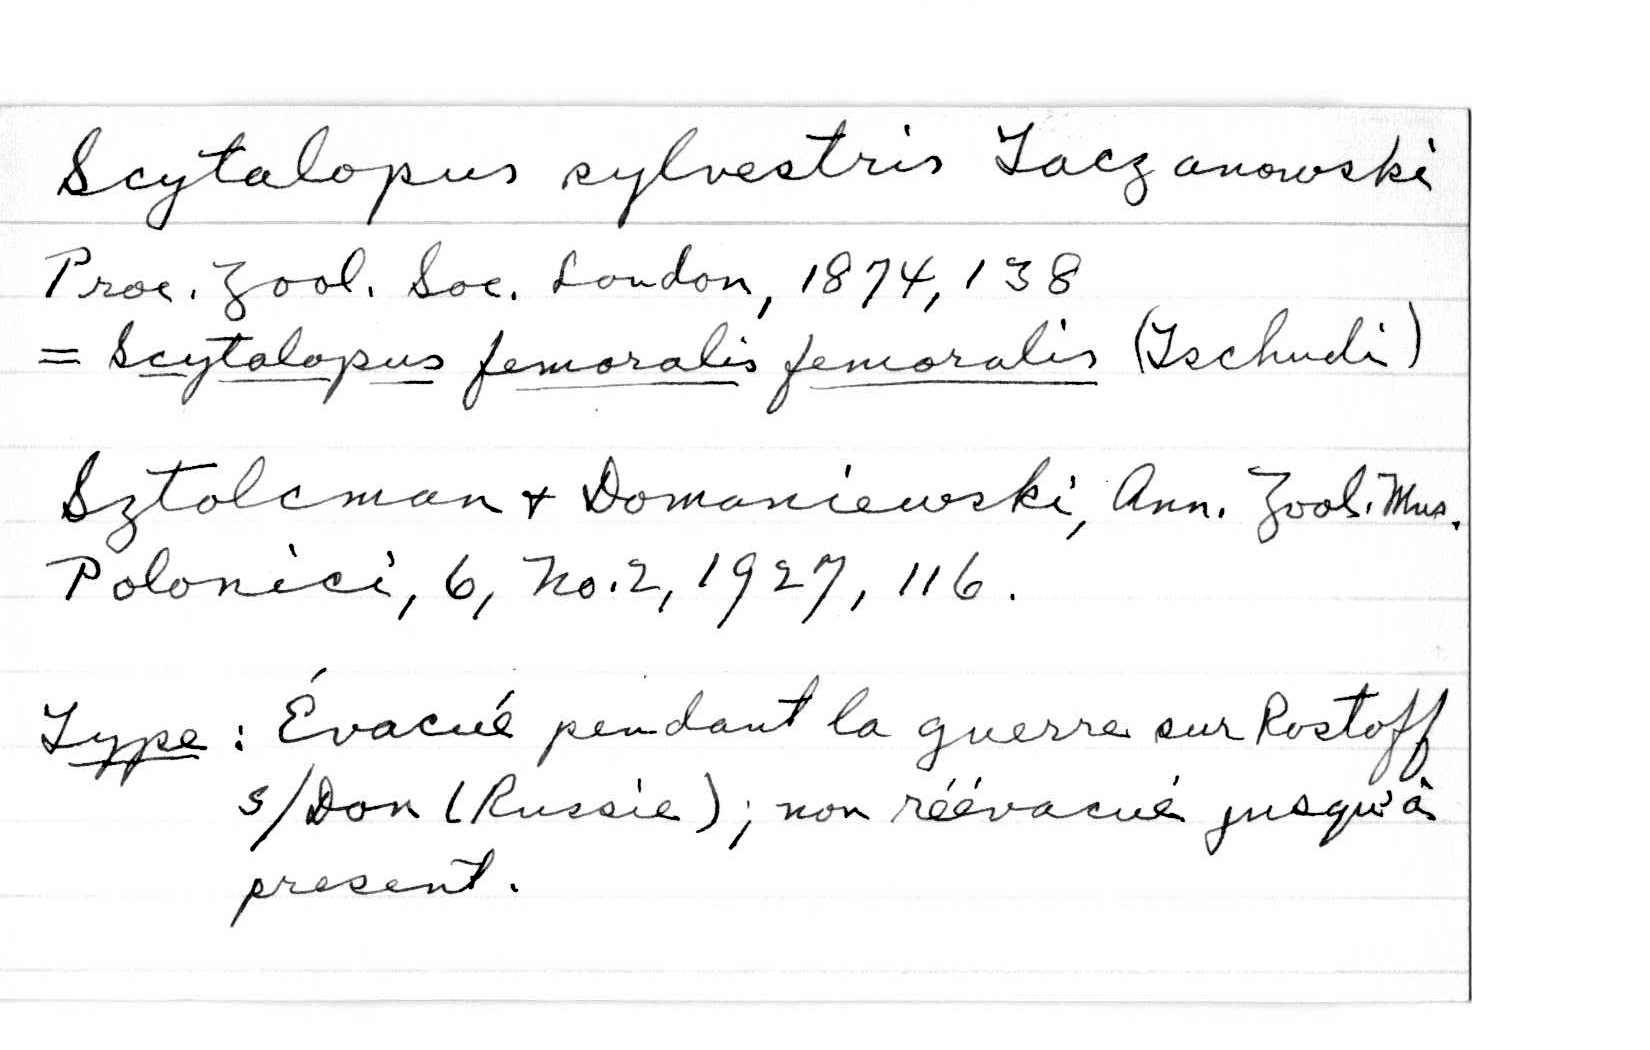 Scytalopus sylvestris Taczanowski
Proc. Zool. Soc. London, 1874, 138
= Scytalopus femoralis femoralis (Tschudi)
Sztolcman + Domaniewski, Ann. Zool. Mus.
Polonici, 6, No. 2, 1927, 116.
Type: Évacué pendant la guerre sur Rostoff
s/Don (Russie); non réévacué jusqu'à
present.